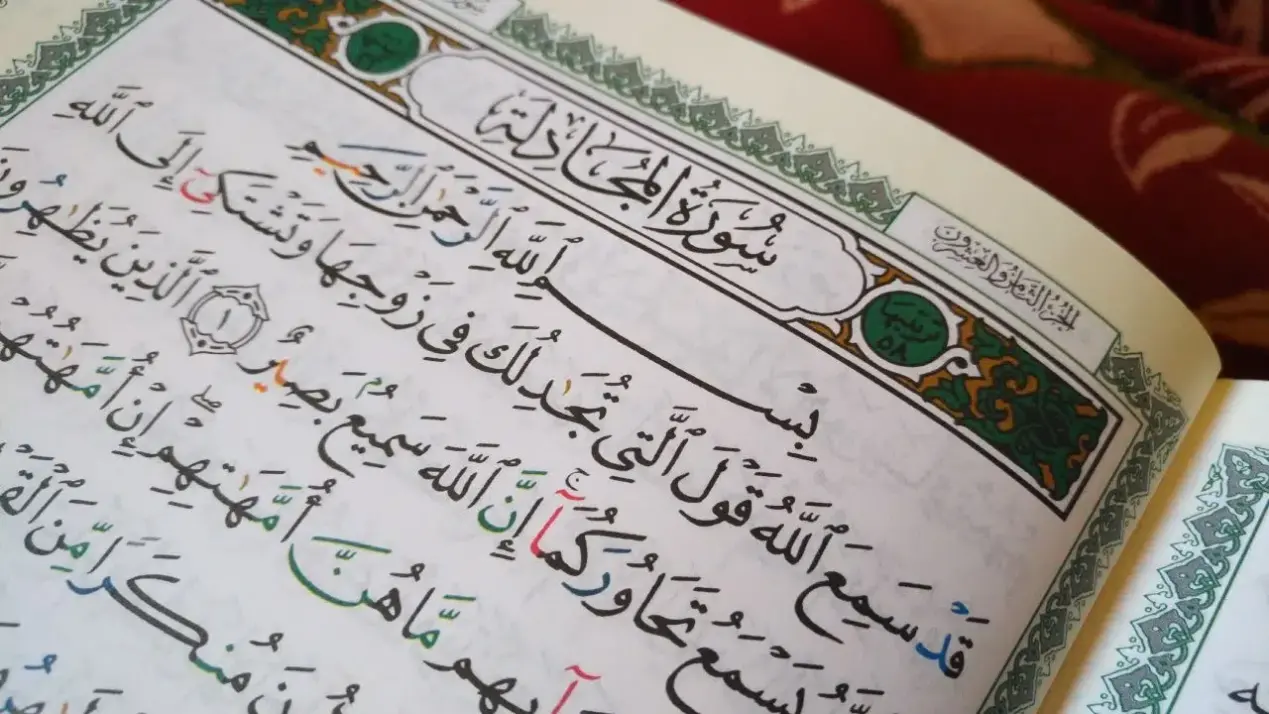 الجزء الثامن والعشرون
سُورَةُ المُجَادلَة
ترتيبها ٥٨
بِسْمِ ٱللَّهِ ٱلرَّحْمَٰنِ ٱلرَّحِيمِ
قَدْ سَمِعَ ٱللَّهُ قَوْلَ ٱلَّتِي تُجَٰدِلُكَ فِي زَوْجِهَا وَتَشْتَكِيٓ إِلَى ٱللَّهِ
يَسْمَعُ تَحَاوُرَكُمَآۚ إِنَّ ٱللَّهَ سَمِيعٌۢ بَصِيرٌ ١ ٱلَّذِينَ يُظَٰهِرُونَ
مَّا هُنَّ أُمَّهَٰتِهِمْۖ إِنْ أُمَّهَٰتُهُمْ
مُنكَرًا مِّنَ